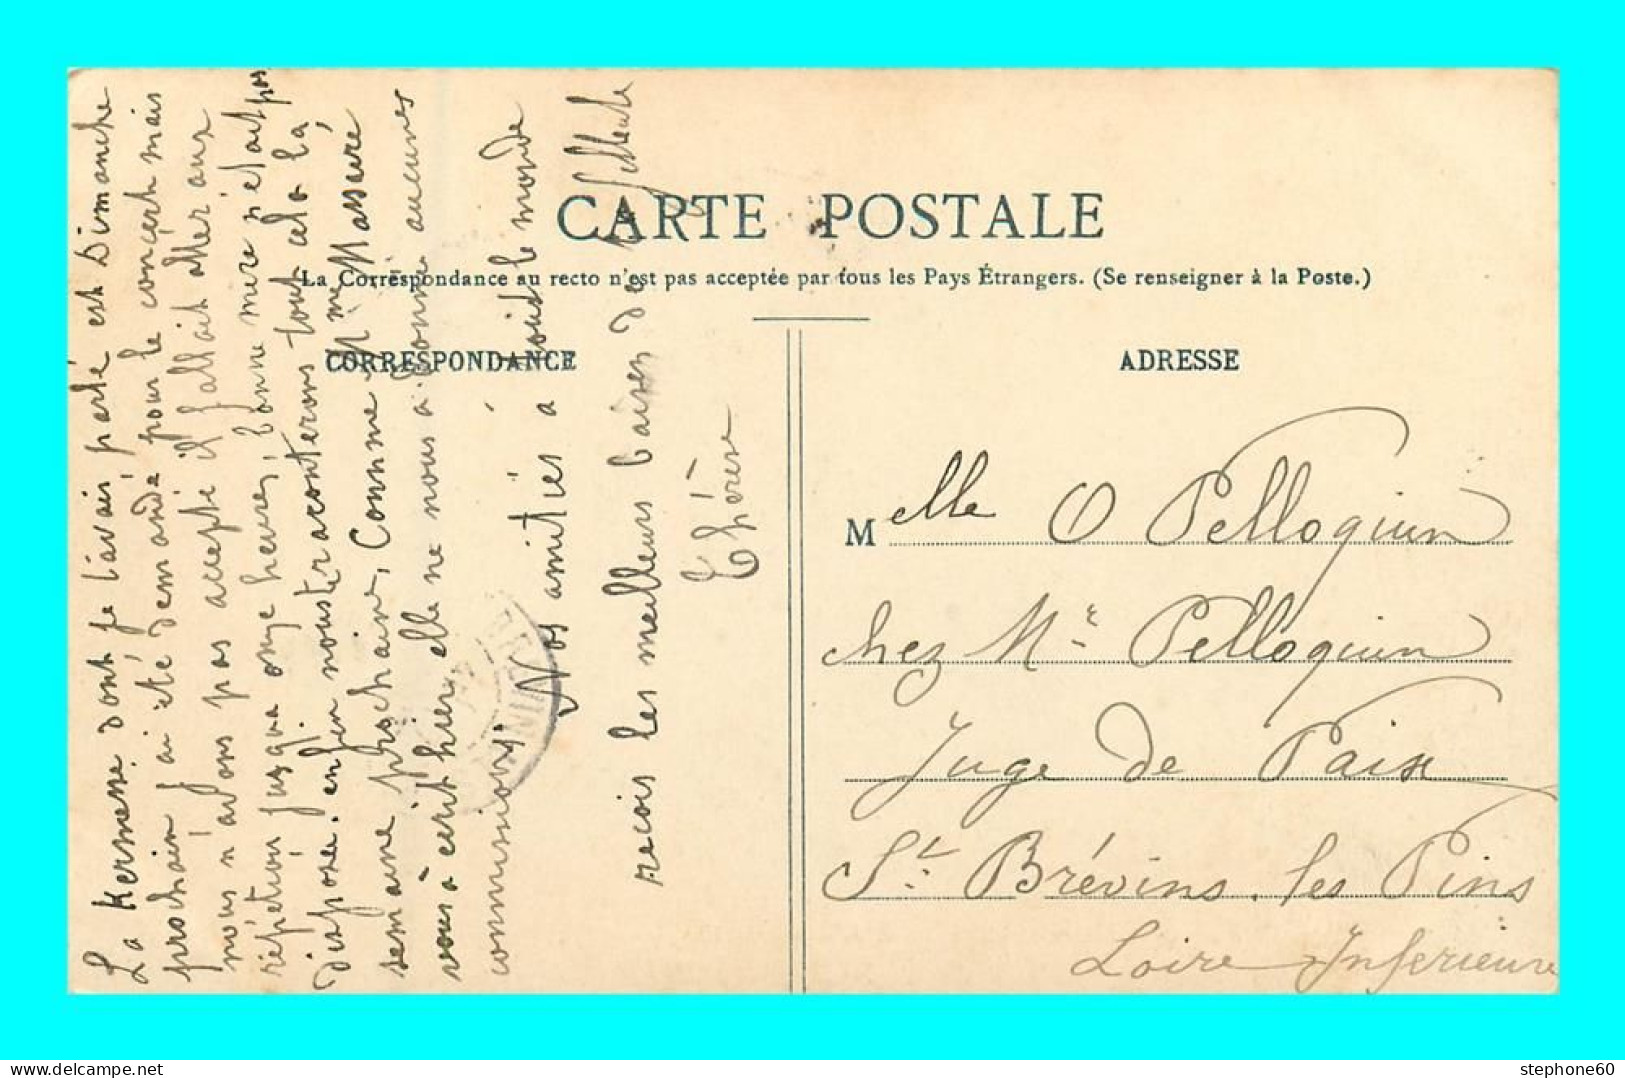 CARTE POSTALE
La Correspondance au recto n'est pas acceptée par tous les Pays Étrangers. (Se renseigner à la Poste.)
CORRESPONDANCE
La Kermesse dont je t'avais parlé est Dimanche
prochain j'ai été demandé pour le concert mais
nous n'avons pas accepté il fallait aller aux
répétions jusqua onze heures, bonne mere n'etait pas
disposée. enfin nous te raconterons tout cela la
semaine prochaine, Comme Mme Massuré
vous a écrit hier elle ne nous a donné aucunes
commissions.
Nos amitiés a tout le monde
recois les meilleurs baisers de ta
Thérèse
ADRESSE
Melle O Pelloquin
chez Mr Pelloquin
Juge de Paix
St Brévins. les Pins
Loire Inferieure
www.delcampe.net
stephone60